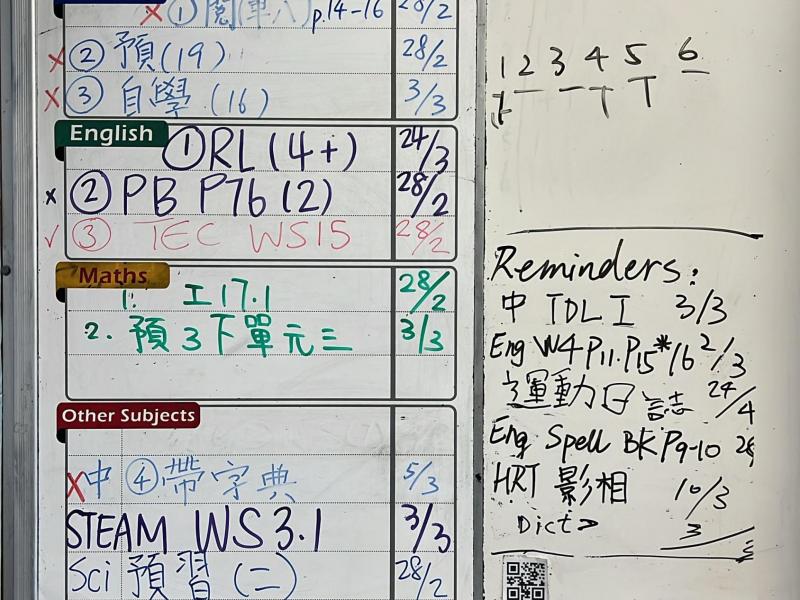 ① 閱(單八) p.14-16 28/2
② 預(19) 28/2
③ 自學 (16) 3/3
English
① RL (4+) 24/3
② PB P76 (2) 28/2
③ TEC WS15 28/2
Maths
1. 工17.1 28/2
2. 預3下單元三 3/3
Other Subjects
中 ④帶字典 5/3
STEAM WS 3.1 3/3
Sci 預習 (二) 28/2
1 2 3 4 5 6
Reminders:
中 TDL I 3/3
Eng W4 P11. P15*/16 2/3
運動日誌 24/4
Eng Spell BK P9-10
HRT 影相 10/3
Dict>
3